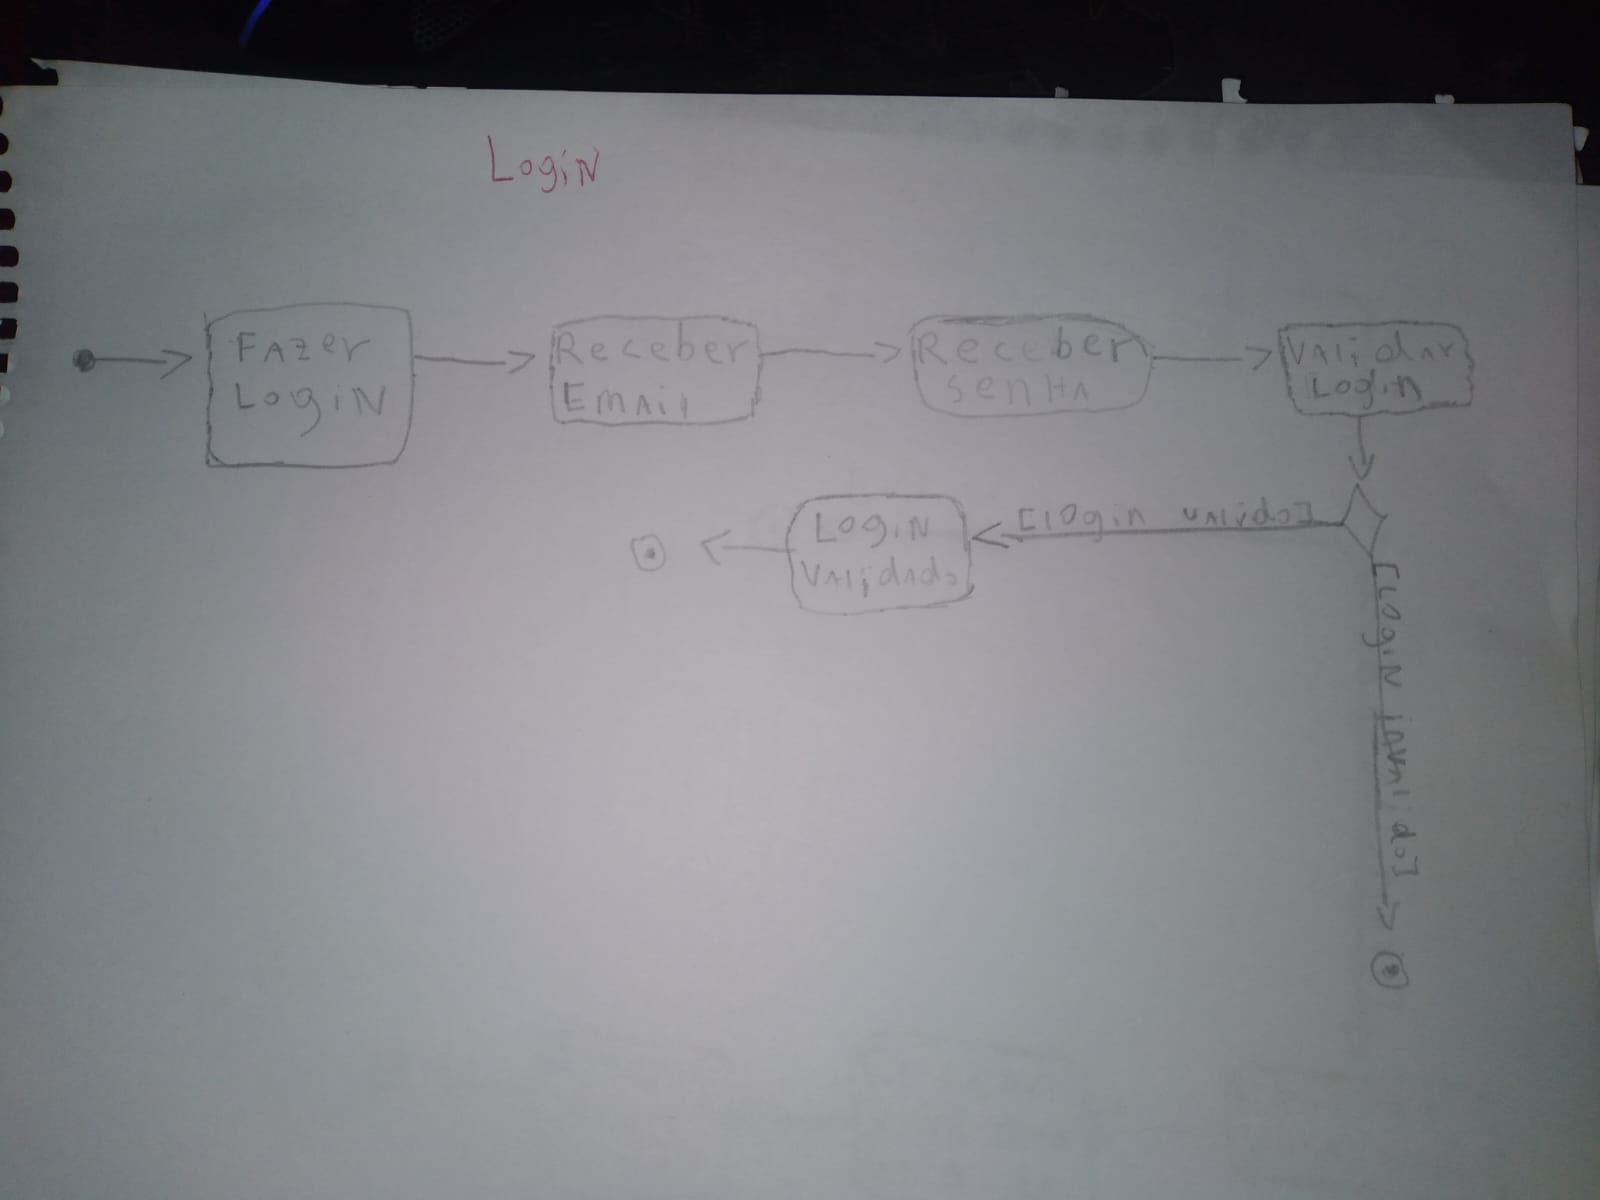 Login
Fazer
Login
Receber
Email
Receber
senha
Validar
Login
[login valido]
Login
Validado
[Login invalido]